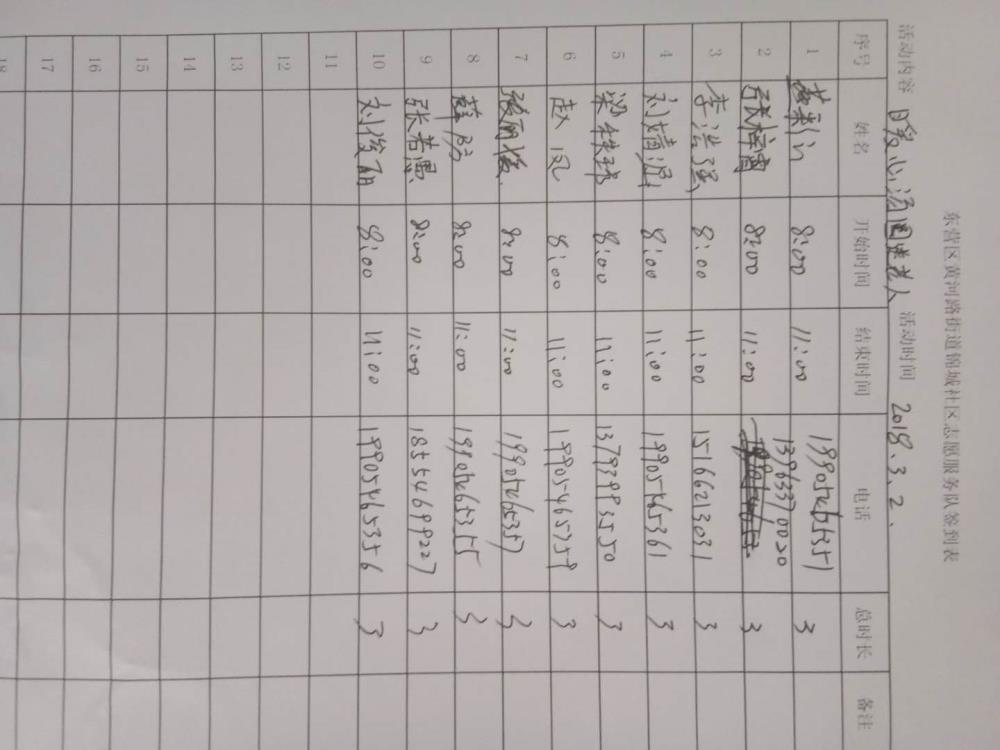 东营区黄河路街道锦城社区志愿服务队签到表
活动内容 暖心汤圆送老人 活动时间 2018.3.2.
序号 姓名 开始时间 结束时间 电话 总时长 备注
1 8:00 11:00 19905465351 3
2 8:00 11:00 13963370020 3
3 李浩强 8:00 11:00 15166213031 3
4 8:00 11:00 19905465361 3
5 8:00 11:00 13793993550 3
6 赵凤 8:00 11:00 19905465759 3
7 张丽俊 8:00 11:00 19905465357 3
8 8:00 11:00 19905465355 3
9 张若愚 8:00 11:00 18554699227 3
10 刘俊丽 8:00 11:00 19905465356 3
11
12
13
14
15
16
17
18